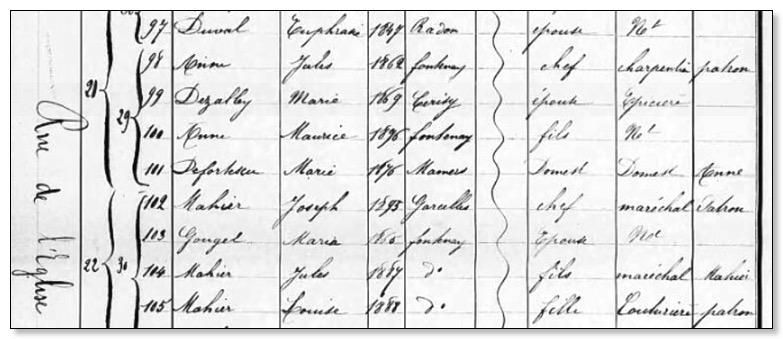 Rue de l'Eglise
97 Duval Euphrasie 1847 Radon épouse Nt
21 29 98 Anne Jules 1862 fontenay chef charpentier patron
99 Marie 1869 Cerisy épouse Epicière
100 Anne Maurice 1896 fontenay fils Nt
101 Marie 1876 Mamers Domest Domest Anne
102 Mahier Joseph Garcelles chef maréchal Patron
103 Gouget Marie fontenay Epouse Nt
22 30 104 Mahier Jules 1887 do fils maréchal Mahier
105 Mahier Louise 1888 do fille Couturière patron